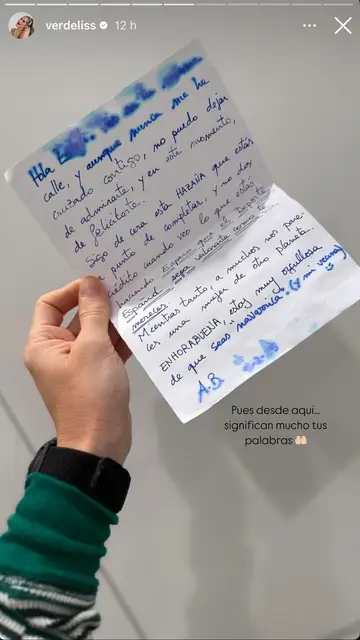 verdeliss 12 h
Hola
calle, y aunque nunca me he
cruzado contigo, no puedo dejar
de admirarte, y en este momento,
de felicitarte..
Sigo de cerca esta HAZAÑA que estás
a punto de completar, y no doy
crédito cuando veo lo que estás
haciendo. Espero que el Deporte
Español sepa valorarte como te
mereces. Mientras tanto a muchos nos pare-
ces una mujer de otro planeta.
ENHORABUENA, estoy muy orgullosa
de que seas navarrica. (Y mi vecina)
A.B.
Pues desde aquí...
significan mucho tus
palabras 🤲🏻